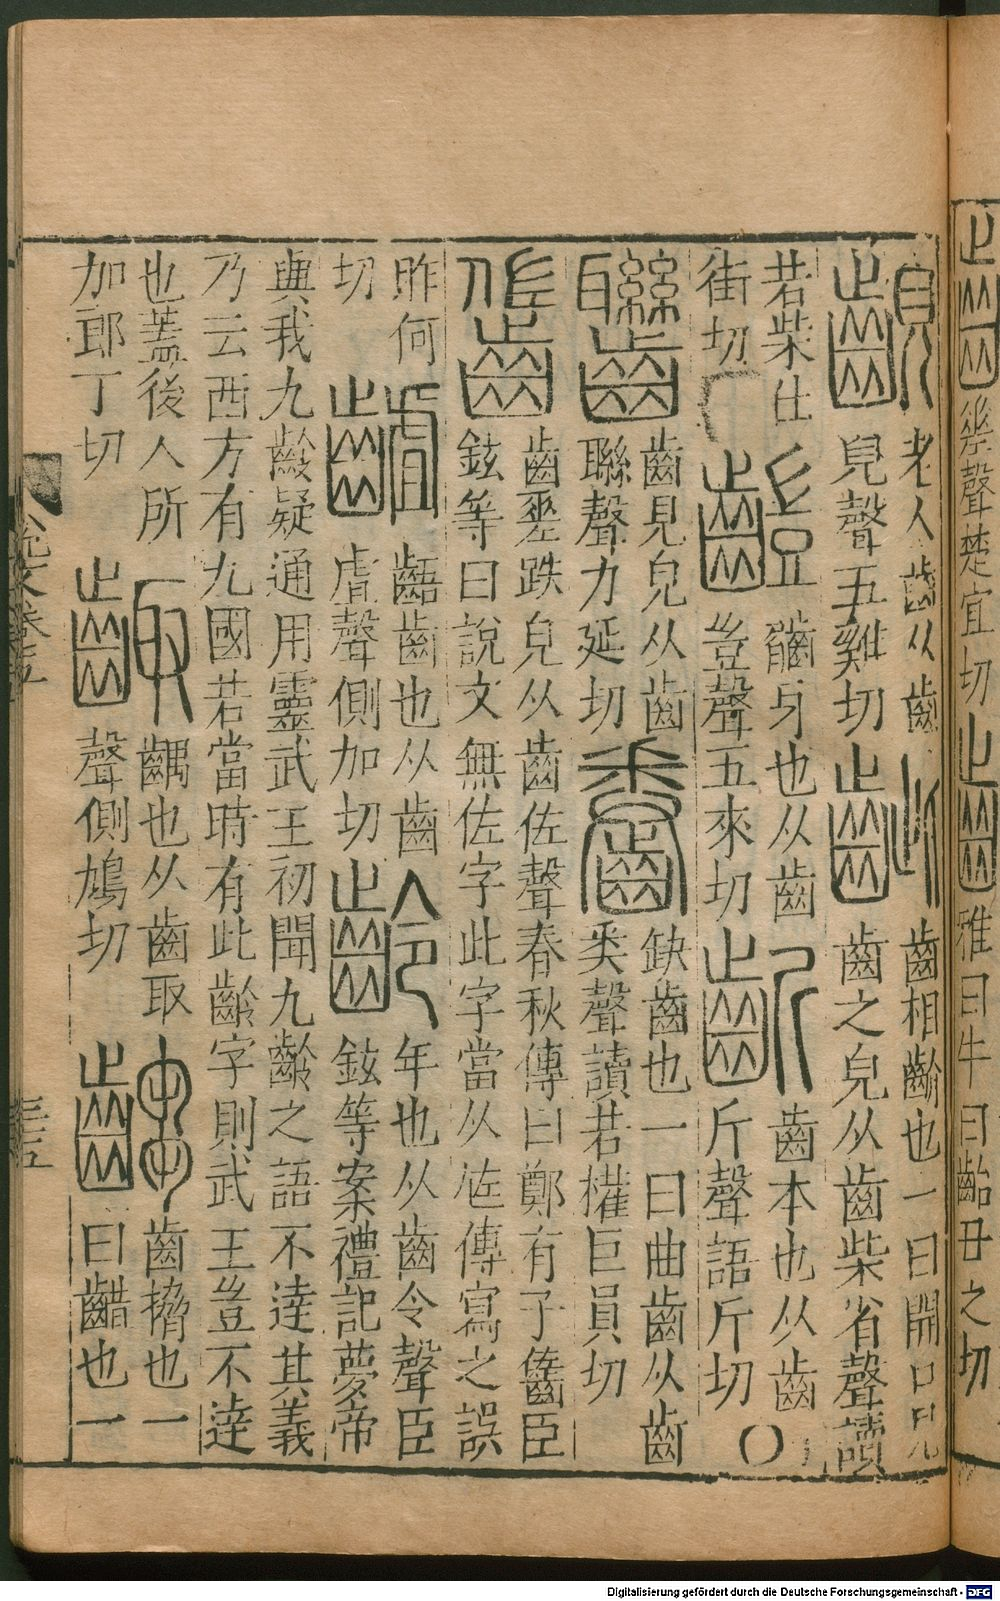 幾聲楚宜切 齝 雅曰牛曰齝丑之切
齯 老人齒从齒兒聲五雞切 齜 齒相齘也一曰開口見齒之皃从齒柴省聲讀
若柴仕街切 齦牙也从齒豈聲五來切 齗 齒本也从齒斤聲語斤切
齒見皃从齒聯聲力延切 齤 缺齒也一曰曲齒从齒类聲讀若權巨員切
齒差跌皃从齒佐聲春秋傳曰鄭有子臣鉉等曰說文無佐字此字當从傳寫之誤
昨何切 䶥 齬齒也从齒虘聲側加切 齡 年也从齒令聲臣鉉等案禮記夢帝
與我九齡疑通用靈武王初聞九齡之語不達其義乃云西方有九國若當時有此齡字則武王豈不達
也蓋後人所加郎丁切 齱 齵也从齒取聲側鳩切 齒搚也一曰齰也一
說文卷五
三五
Digitalisierung gefördert durch die Deutsche Forschungsgemeinschaft - DFG